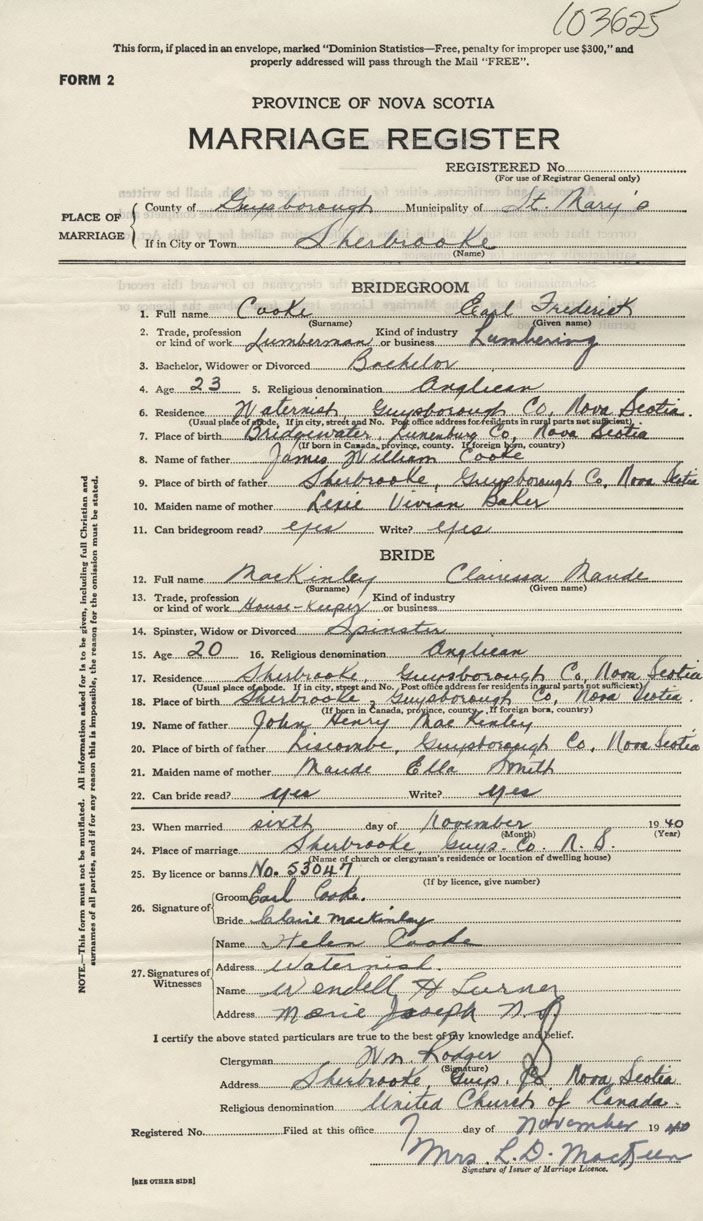 103625
This form, if placed in an envelope, marked "Dominion Statistics—Free, penalty for improper use $300," and
properly addressed will pass through the Mail "FREE".
FORM 2
PROVINCE OF NOVA SCOTIA
MARRIAGE REGISTER
REGISTERED No.
(For use of Registrar General only)
PLACE OF MARRIAGE
County of Guysborough Municipality of St. Mary's
If in City or Town Sherbrooke
(Name)
BRIDEGROOM
1. Full name Cooke Earl Frederick
(Surname) (Given name)
2. Trade, profession or kind of work Lumberman Kind of industry or business Lumbering
3. Bachelor, Widower or Divorced Bachelor
4. Age 23 5. Religious denomination Anglican
6. Residence Waternish, Guysborough Co, Nova Scotia.
(Usual place of abode, If in city, street and No. Post office address for residents in rural parts not sufficient)
7. Place of birth Bridgewater, Lunenburg Co, Nova Scotia
(If born in Canada, province, county. If foreign born, country)
8. Name of father James William Cooke
9. Place of birth of father Sherbrooke, Guysborough Co, Nova Scotia
10. Maiden name of mother Lexie Vivian Baker
11. Can bridegroom read? yes Write? yes
BRIDE
12. Full name MacKinley Clairessa Maude
(Surname) (Given name)
13. Trade, profession or kind of work House-Keeper Kind of industry or business
14. Spinster, Widow or Divorced Spinster
15. Age 20 16. Religious denomination Anglican
17. Residence Sherbrooke, Guysborough Co, Nova Scotia
(Usual place of abode. If in city, street and No. Post office address for residents in rural parts not sufficient)
18. Place of birth Sherbrooke, Guysborough Co, Nova Scotia.
(If born in Canada, province, county. If foreign born, country)
19. Name of father John Henry MacKinley
20. Place of birth of father Liscombe, Guysborough Co, Nova Scotia
21. Maiden name of mother Maude Ella Smith
22. Can bride read? yes Write? yes
23. When married sixth day of November 1940
(Month) (Year)
24. Place of marriage Sherbrooke, Guys. Co. N. S.
(Name of church or clergyman's residence or location of dwelling house)
25. By licence or banns No. 53047
(If by licence, give number)
26. Signature of
Groom Earl Cooke.
Bride Claire MacKinley
27. Signatures of Witnesses
Name Helen Cooke
Address Waternish.
Name Wendell H Turner
Address Marie Joseph N.S.
I certify the above stated particulars are true to the best of my knowledge and belief.
Clergyman Wm. Rodger
(Signature)
Address Sherbrooke, Guys. Co Nova Scotia
Religious denomination United Church of Canada.
Registered No. Filed at this office 7 day of November 1940
Mrs. L. D. MacKeen
Signature of Issuer of Marriage Licence.
[SEE OTHER SIDE]
NOTE.—This form must not be mutilated. All information asked for is to be given, including full Christian and
surnames of all parties, and if for any reason this is impossible, the reason for the omission must be stated.